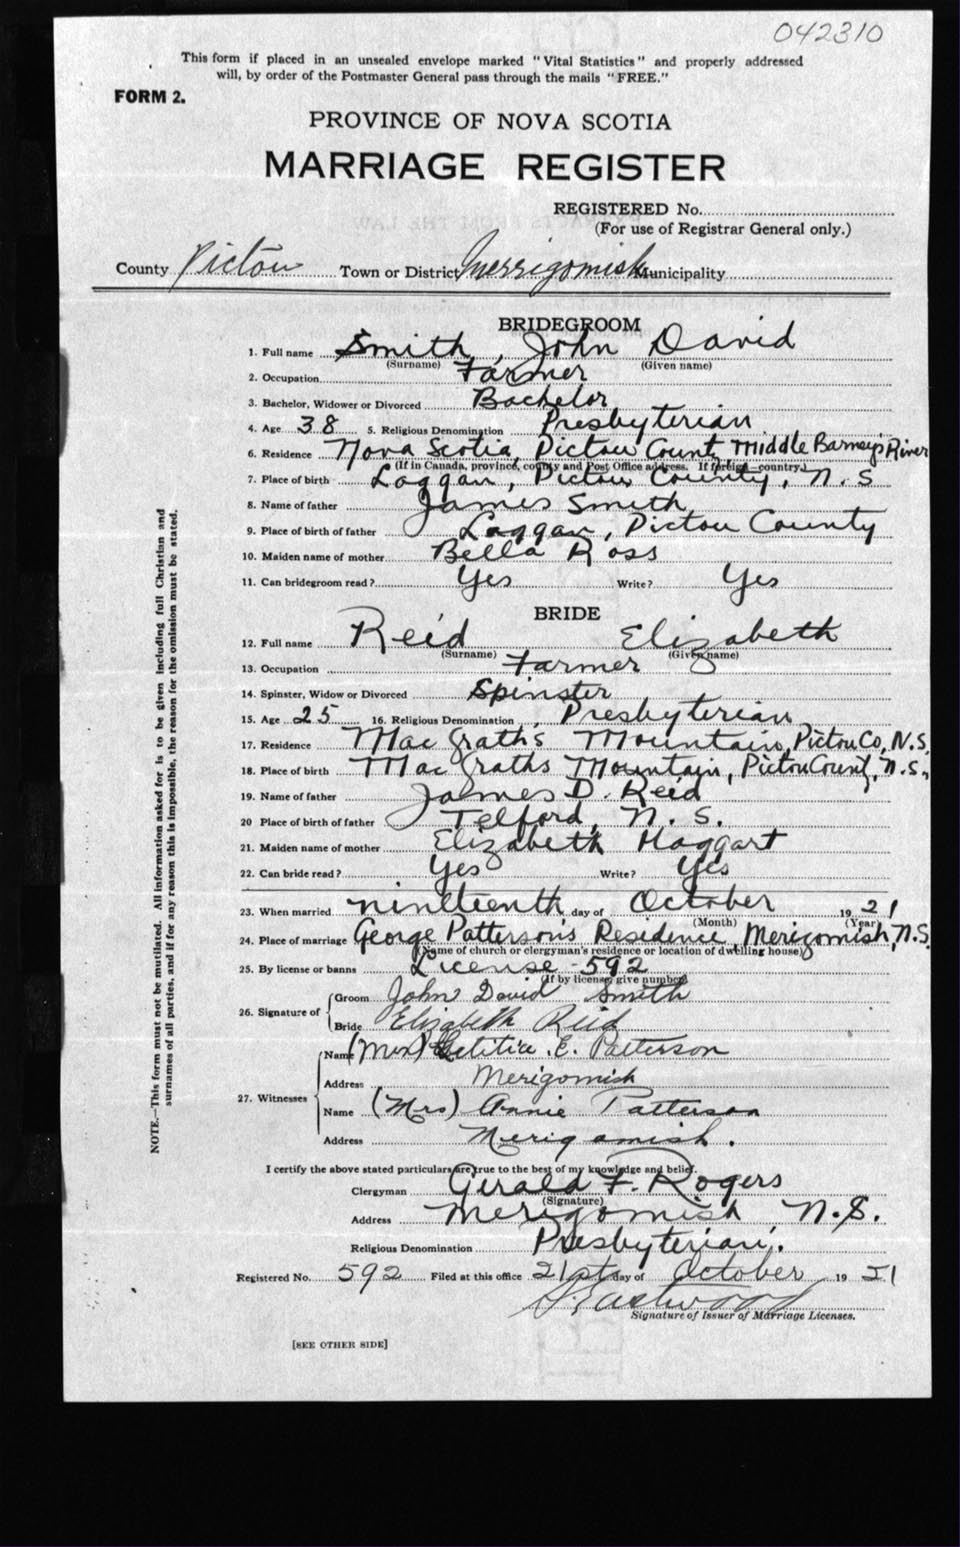 042310
This form if placed in an unsealed envelope marked "Vital Statistics" and properly addressed
will, by order of the Postmaster General pass through the mails "FREE."
FORM 2.
PROVINCE OF NOVA SCOTIA
MARRIAGE REGISTER
REGISTERED No.
(For use of Registrar General only.)
County Pictou Town or District Merrigomish Municipality
BRIDEGROOM
1. Full name Smith, John David
(Surname) (Given name)
2. Occupation Farmer
3. Bachelor, Widower or Divorced Bachelor
4. Age 38 5. Religious Denomination Presbyterian
6. Residence Nova Scotia, Pictou County, Middle Barney's River
(If in Canada, province, county and Post Office address. If foreign—country.)
7. Place of birth Loggan, Pictou County, N.S
8. Name of father James Smith
9. Place of birth of father Loggan, Pictou County
10. Maiden name of mother Bella Ross
11. Can bridegroom read? Yes Write? Yes
BRIDE
12. Full name Reid Elizabeth
(Surname) (Given name)
13. Occupation Farmer
14. Spinster, Widow or Divorced Spinster
15. Age 25 16. Religious Denomination Presbyterian
17. Residence MacGraths Mountain, Pictou Co, N.S.
18. Place of birth MacGraths Mountain, Pictou County, N.S.
19. Name of father James D. Reid
20 Place of birth of father Telford, N.S.
21. Maiden name of mother Elizabeth Haggart
22. Can bride read? Yes Write? Yes
23. When married nineteenth day of October 1921
(Month) (Year)
24. Place of marriage George Patterson's Residence, Merigomish, N.S.
(Name of church or clergyman's residence or location of dwelling house)
25. By license or banns License 592
(If by license, give number)
26. Signature of
Groom John David Smith
Bride Elizabeth Reid
27. Witnesses
Name Letitia E. Patterson
Address Merigomish
Name (Mrs) Annie Patterson
Address Merigomish.
I certify the above stated particulars are true to the best of my knowledge and belief.
Clergyman Gerald F. Rogers
(Signature)
Address Merigomish N.S.
Religious Denomination Presbyterian.
Registered No. 592 Filed at this office 21st day of October 1921
Eastwood
Signature of Issuer of Marriage Licenses.
[SEE OTHER SIDE]
NOTE.—This form must not be mutilated. All information asked for is to be given including full Christian and
surnames of all parties, and if for any reason this is impossible, the reason for the omission must be stated.